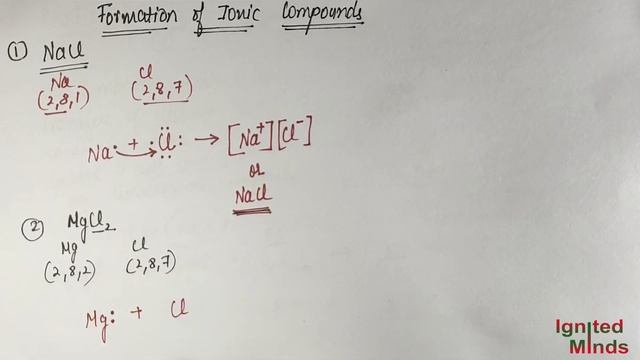 Formation of Ionic Compounds
① NaCl
Na Cl
(2,8,1) (2,8,7)
Na• + :Cl: → [Na⁺][Cl⁻]
or
NaCl
② MgCl₂
Mg Cl
(2,8,2) (2,8,7)
Mg: + Cl
Ignited
Minds